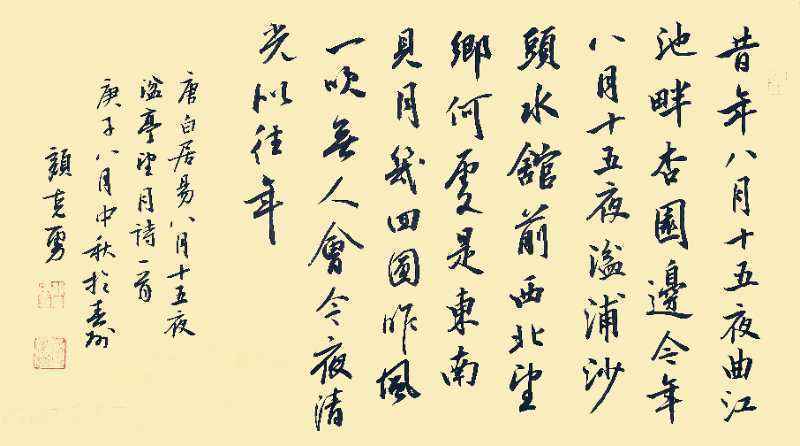 昔年八月十五夜曲江
池畔杏園邊今年
八月十五夜湓浦沙
頭水館前西北望
鄉何處是東南
見月幾回圓昨風
一吹無人會今夜清
光似往年
唐白居易八月十五夜
湓亭望月詩一首
庚子八月中秋於
顏克勇